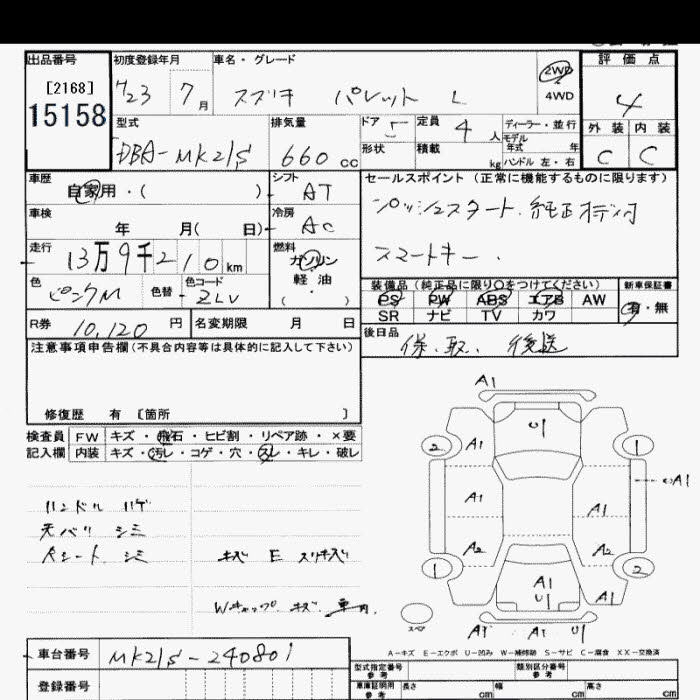 出品番号 [2168] 15158
初度登録年月 H23 7月
車名・グレード スズキ パレット L
2WD 4WD
評価点 4
外装 C 内装 C
型式 DBA-MK21S
排気量 660 cc
ドア 5 定員 4人 ディーラー・並行
形状 積載 kg モデル年式 年 ハンドル 左・右
車歴 自家用・( )
シフト AT
セールスポイント (正常に機能するものに限ります)
プッシュスタート. 純正
スマートキー.
車検 年 月( 日)
冷房 AC
走行 13万9千210km
燃料 ガソリン 軽油 ( )
色 ピンクM 色替 色コード ZLV
装備品 (純正品に限り○をつけてください)
PS PW ABS エアB AW
SR ナビ TV カワ
新車保証書 有・無
R券 10,120 円 名変期限 月 日
後日品 保.取. 後送
注意事項申告欄(不具合内容等は具体的に記入して下さい)
修復歴 有 [箇所 ]
検査員 FW キズ・飛石・ヒビ割・リペア跡・×要
記入欄 内装 キズ・汚レ・コゲ・穴・スレ・キレ・破レ
ハンドル ハゲ
天バリ シミ
Aシート シミ キズ E スリキズ
Wキャップ キズ. 車内.
A1
U1
2 A1 1
A1 A1 A1
A2 A2
1 A1 U1 A1 2
スペア A1 A1 U1
A-キズ E-エクボ U-凹み W-補修跡 S-サビ C-腐食 XX-交換済
車台番号 MK21S-240801
登録番号
型式指定番号 参考 類別区分番号 参考
車庫証明用 参考 長さ cm 幅 cm 高さ cm